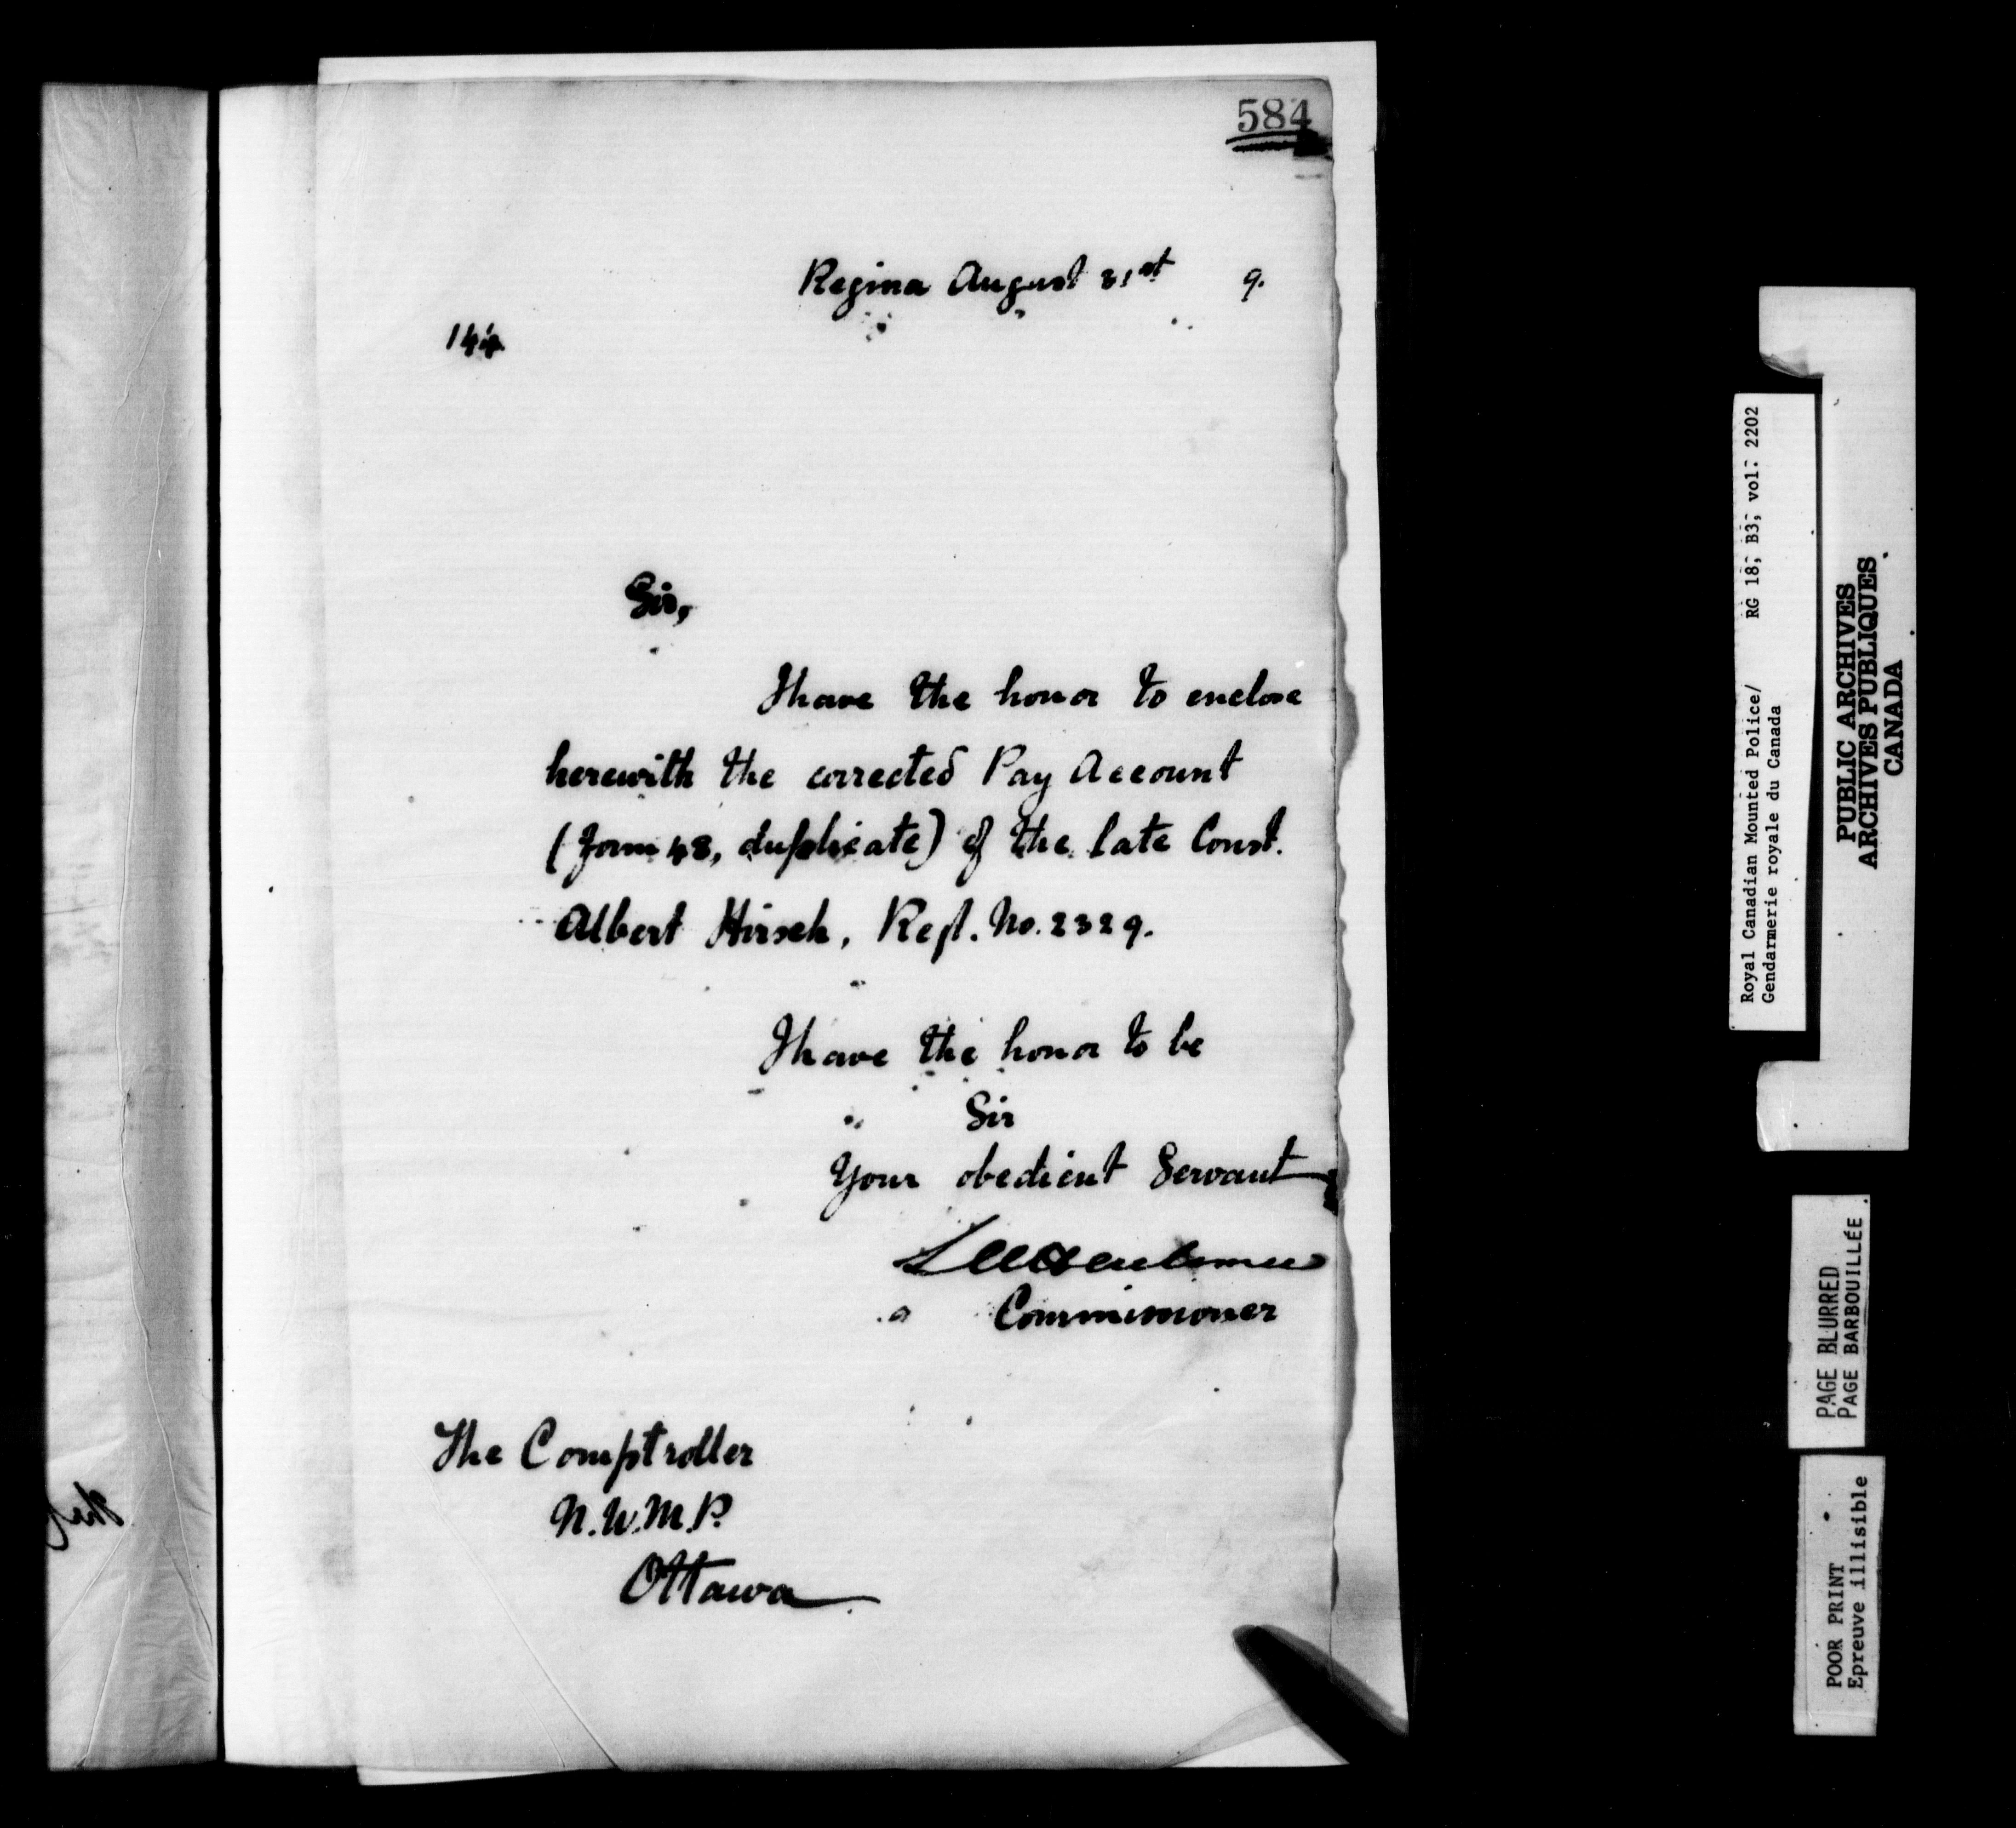 584
Regina August 31st 9.
144
Sir,
I have the honor to enclose
herewith the corrected Pay Account
(form 48, duplicate) of the late Const.
Albert Hirsch, Regl. No. 2329.
I have the honor to be
Sir
Your obedient Servant
Commissioner
The Comptroller
N.W.M.P.
Ottawa
Royal Canadian Mounted Police/ RG 18, B3, vol. 2202
Gendarmerie royale du Canada
PUBLIC ARCHIVES
ARCHIVES PUBLIQUES
CANADA
PAGE BLURRED
PAGE BARBOUILLÉE
POOR PRINT
Epreuve illisible